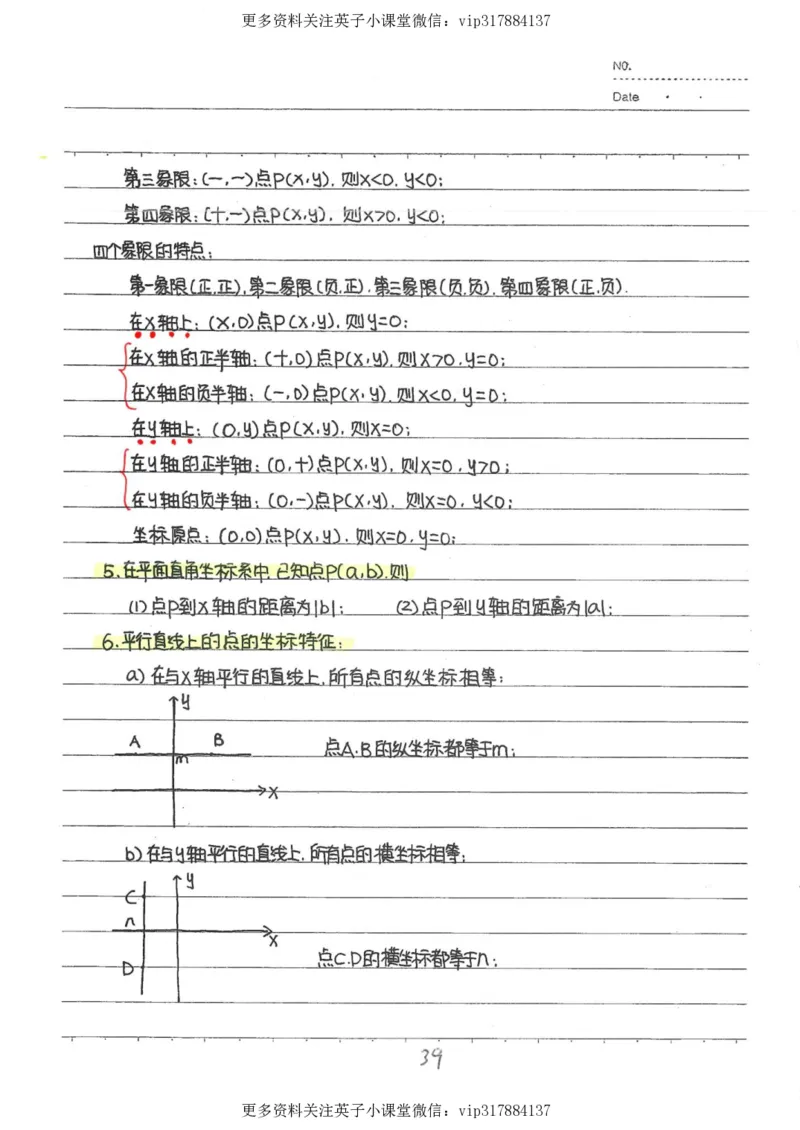 更多资料关注英子小课堂微信：vip317884137
NO.
Date
第三象限：(－,－)点P(x,y)，则x<0，y<0；
第四象限：(＋,－)点P(x,y)，则x>0，y<0；
四个象限的特点：
第一象限(正,正)，第二象限(负,正)，第三象限(负,负)，第四象限(正,负)．
在x轴上：(x,0)点P(x,y)，则y=0；
在x轴的正半轴：(＋,0)点P(x,y)，则x>0，y=0；
在x轴的负半轴：(－,0)点P(x,y)，则x<0，y=0；
在y轴上：(0,y)点P(x,y)，则x=0；
在y轴的正半轴：(0,＋)点P(x,y)，则x=0，y>0；
在y轴的负半轴：(0,－)点P(x,y)，则x=0，y<0；
坐标原点：(0,0)点P(x,y)，则x=0，y=0；
5.在平面直角坐标系中，已知点P(a,b)，则
(1)点P到x轴的距离为|b|； (2)点P到y轴的距离为|a|；
6.平行直线上的点的坐标特征：
a)在与x轴平行的直线上，所有点的纵坐标相等；
y
A B 点A.B的纵坐标都等于m；
m
x
b)在与y轴平行的直线上，所有点的横坐标相等；
y
C
n
x
D 点C.D的横坐标都等于n；
39
更多资料关注英子小课堂微信：vip317884137